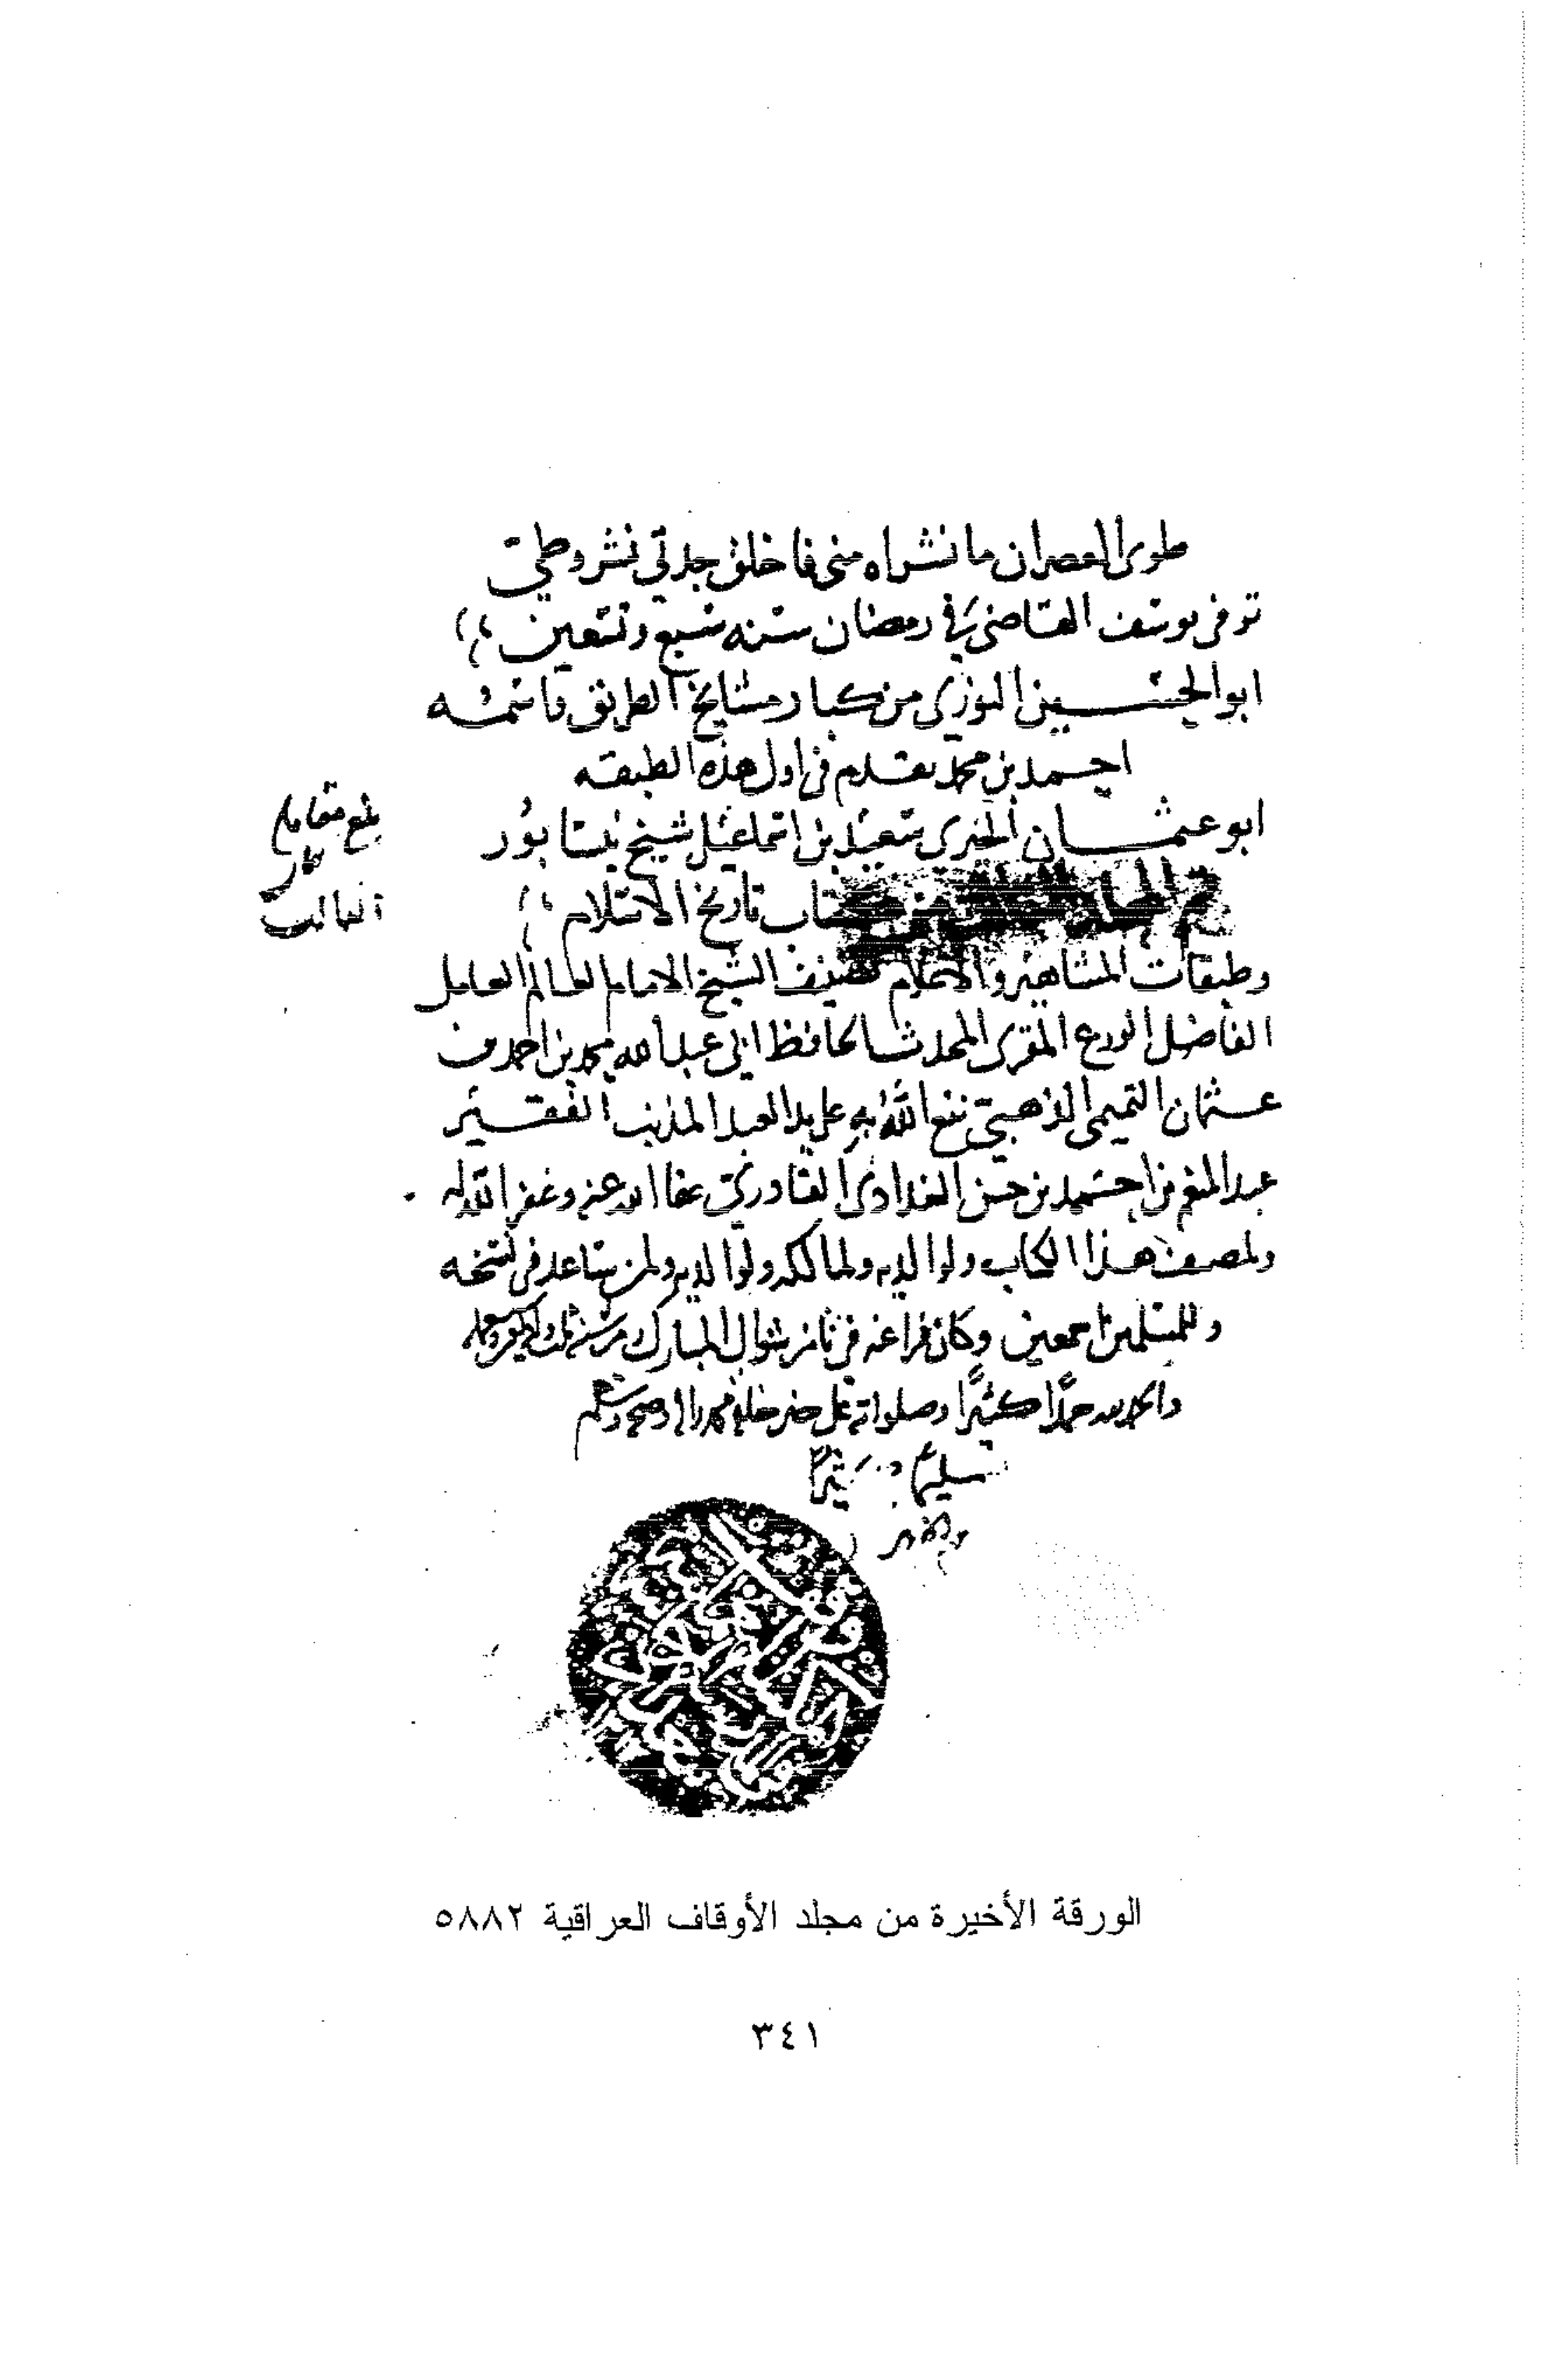 طوى العصران ما نشراه مني فاخلق جدتي نشر وطي
توفي يوسف القاضي في رمضان سنه سبع وتسعين
ابو الحسين النوري من كبار مشايخ الطريق واسمه
احمد بن محمد تقدم في اول هذه الطبقه
ابو عثمان الحيري سعيد بن اسماعيل شيخ نيسابور
كتاب تاريخ الاسلام
وطبقات المشاهير والاعلام تصنيف الشيخ الامام العالم العامل
الفاضل الورع المقرى المحدث الحافظ ابي عبد الله محمد بن احمد بن
عثمان التميمي الذهبي نفع الله به على يد العبد المذنب الفقير
عبد المنعم بن احمد بن حسن البغدادي القادري عفا الله عنه وغفر الله له
ولمصنف هذا الكتاب ولوالديه ولمالكه ولوالديه ولمن ساعد في نسخه
وللمسلمين اجمعين وكان فراغه في ثامن شوال المبارك من سنه
والحمد لله حمدًا كثيرًا وصلواته على خير خلقه محمد واله وصحبه وسلم
تسليمًا كثيرًا
بلغ مقابله
الورقة الأخيرة من مجلد الأوقاف العراقية ٥٨٨٢
٣٤١